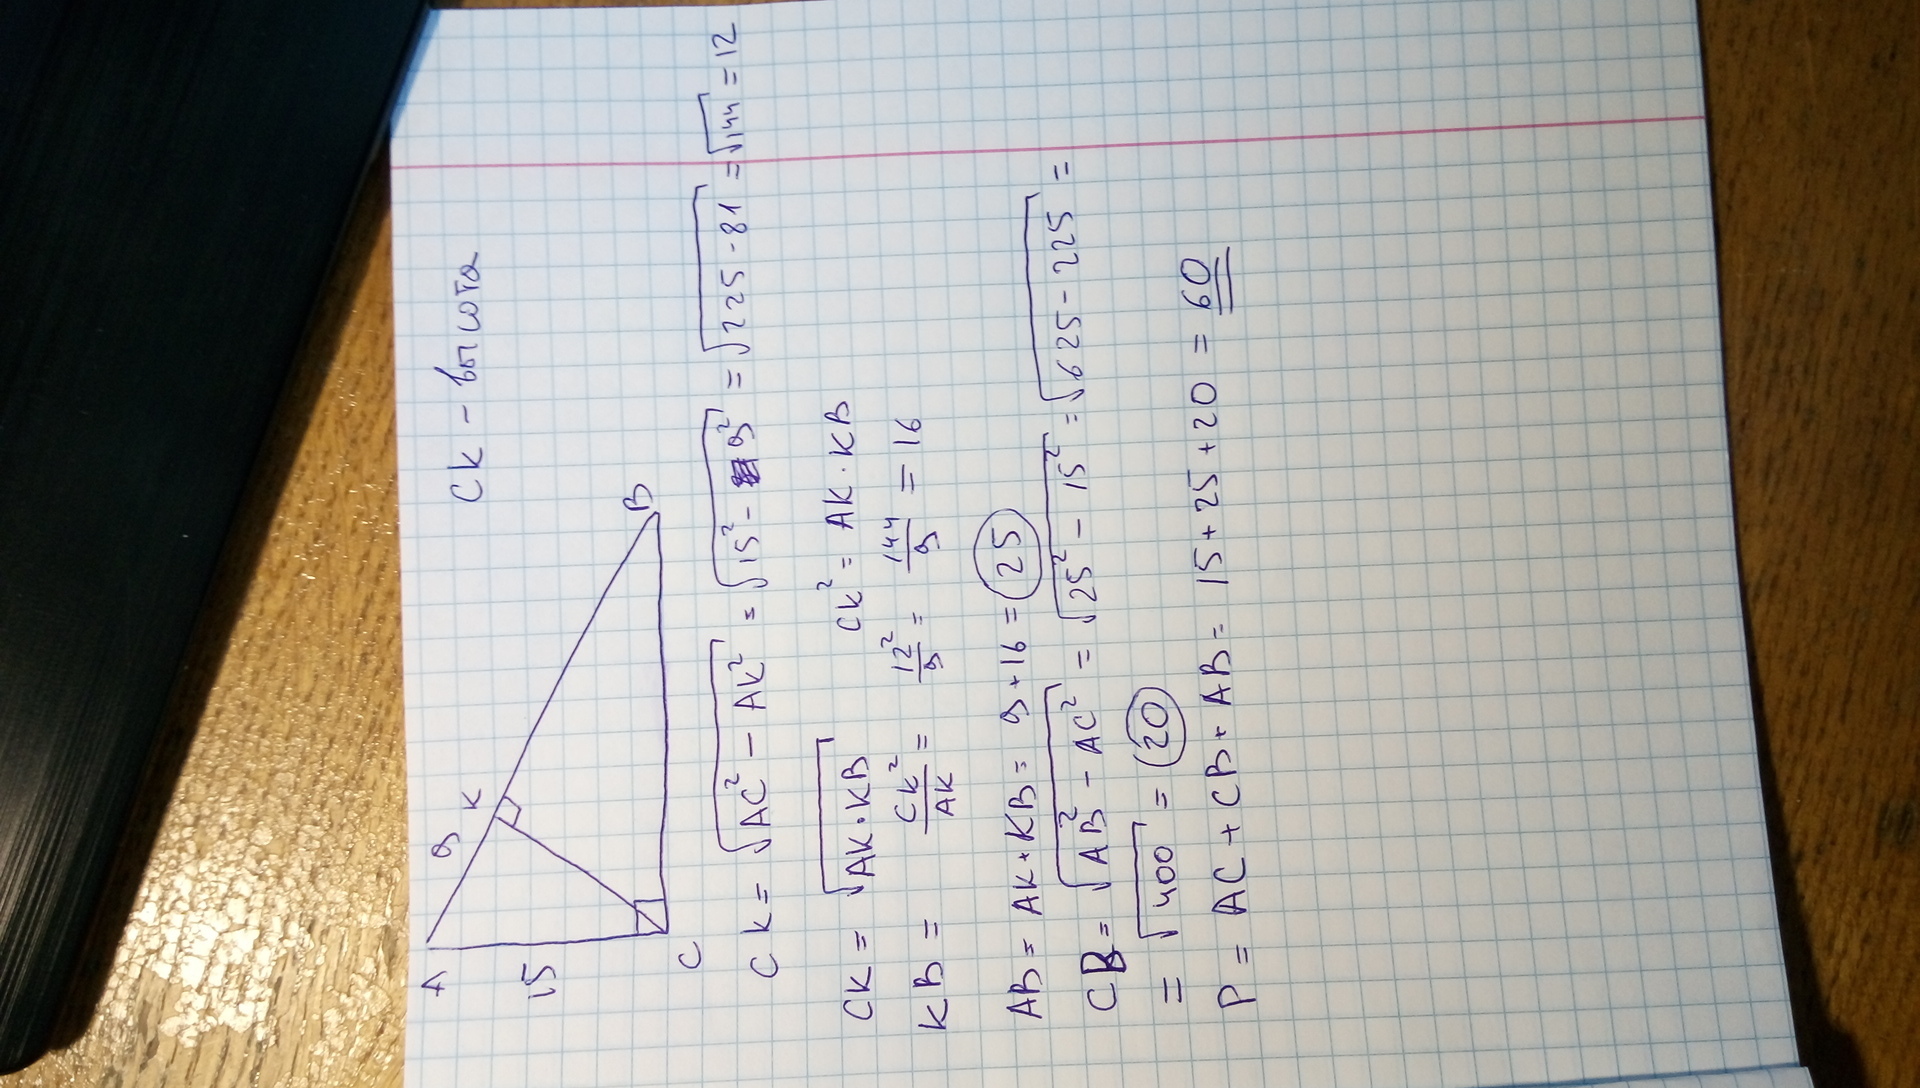 CK - высота
A
9
K
15
B
C
CK = √AC² - AK² = √15² - 9² = √225 - 81 = √144 = 12
CK = √AK · KB CK² = AK · KB
KB = CK²/AK = 12²/9 = 144/9 = 16
AB = AK + KB = 9 + 16 = 25
CB = √AB² - AC² = √25² - 15² = √625 - 225 =
= √400 = 20
P = AC + CB + AB = 15 + 25 + 20 = 60